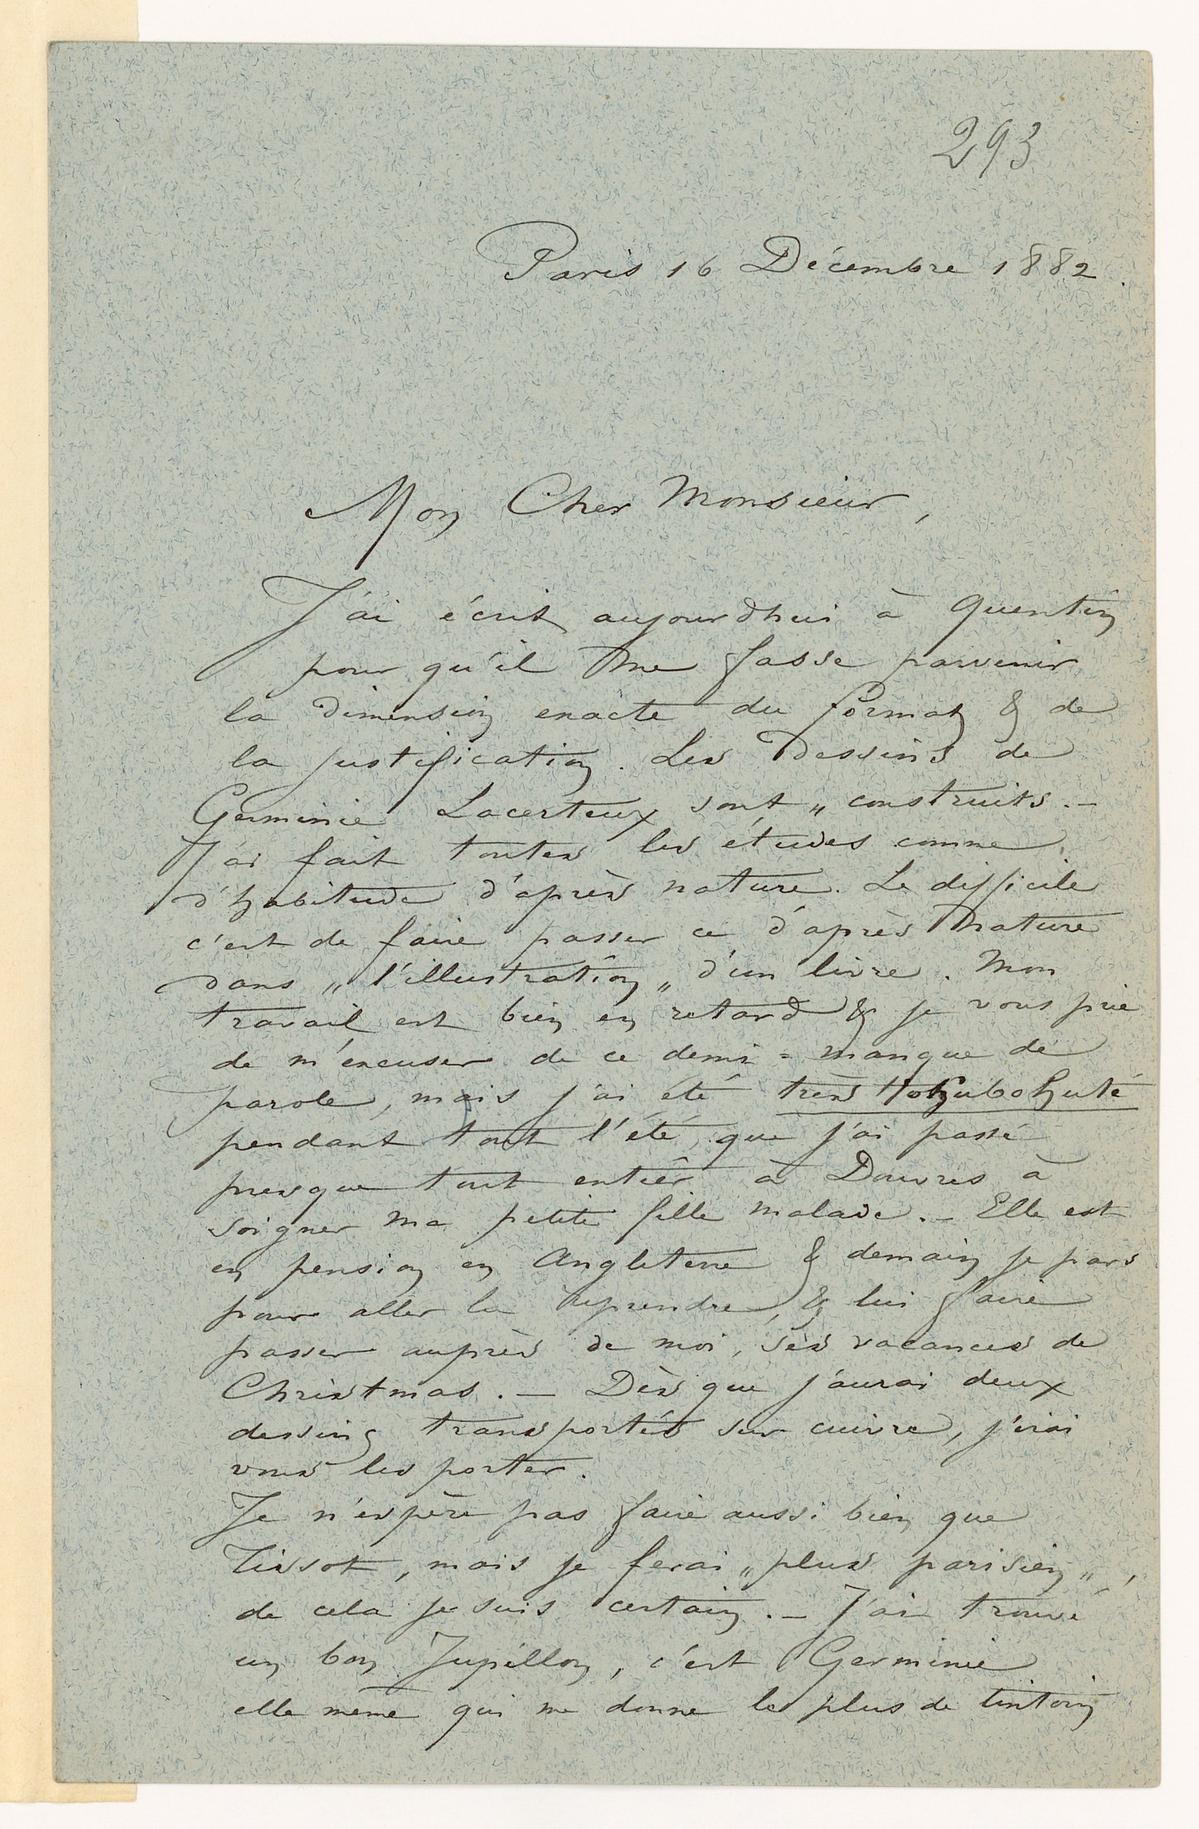 293
Paris 16 Décembre 1882.
Mon Cher Monsieur,
J'ai écrit aujourdhui à Quentin
pour qu'il me fasse parvenir
la dimension exacte du format & de
la justification. Les dessins de
Germinie Lacerteux sont „ construits. _
J'ai fait toutes les études comme
d'habitude d'après nature. Le difficile
c'est de faire passer ce d'après nature
dans „ l'illustration „ d'un livre. Mon
travail est bien en retard & je vous prie
de m'excuser de ce demi = manque de
parole, mais j'ai été très tohubohuté
pendant tout l'été que j'ai passé
presque tout entier à Douvres à
soigner ma petite fille malade. _ Elle est
en pension en Angleterre & demain je pars
pour aller la reprendre, & lui faire
passer auprès de moi, ses vacances de
Christmas. _ Dès que j'aurai deux
dessins transportés sur cuivre, j'irai
vous les porter.
Je n'espère pas faire aussi bien que
Tissot, mais je ferai „ plus parisien „,
de cela je suis certain. _ J'ai trouvé
un bon Jupillon, c'est Germinie
elle même qui me donne le plus de tintoin